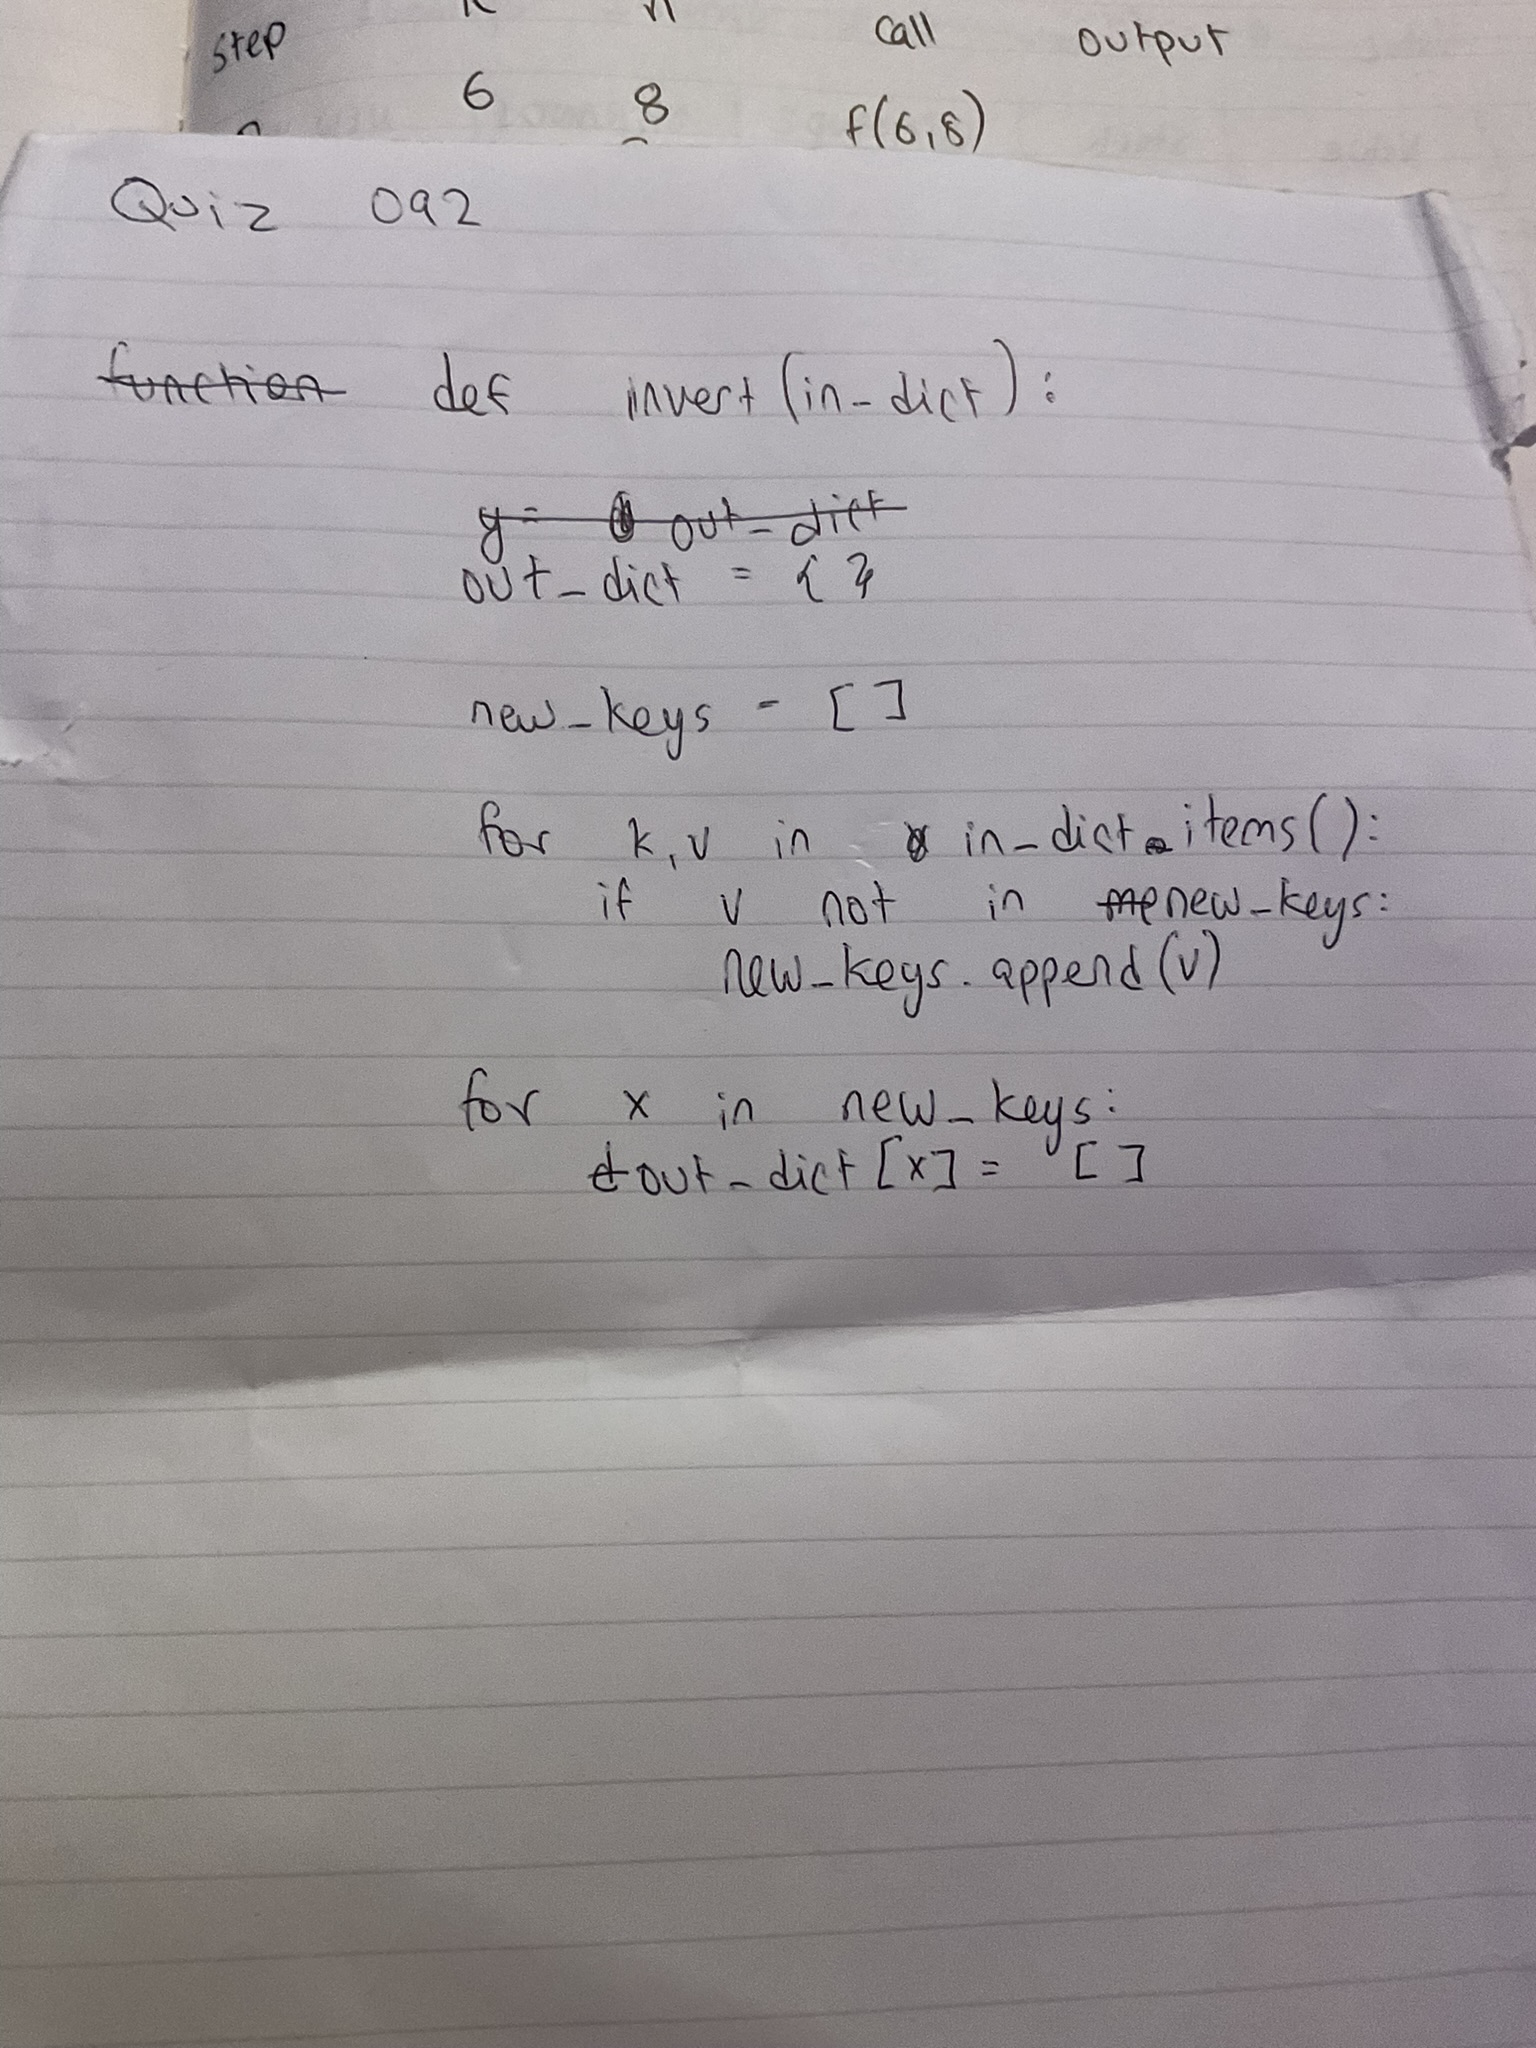 step call output
6 8 f(6,8)
Quiz 092
function def invert(in_dict):
y = out_dict
out_dict = { }
new_keys = [ ]
for k,v in in_dict.items():
if v not in new_keys:
new_keys.append(v)
for x in new_keys:
out_dict[x] = [ ]